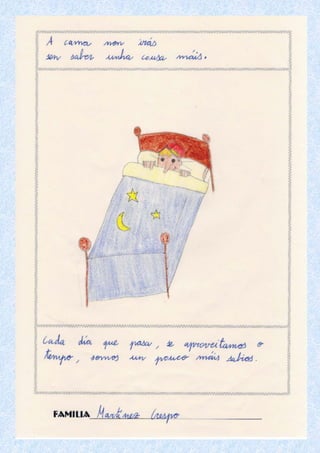 A cama non irás
sen saber unha cousa máis.
Cada día que pasa, se aproveitamos o
tempo, somos un pouco máis sabios.
FAMILIA Martínez Crespo